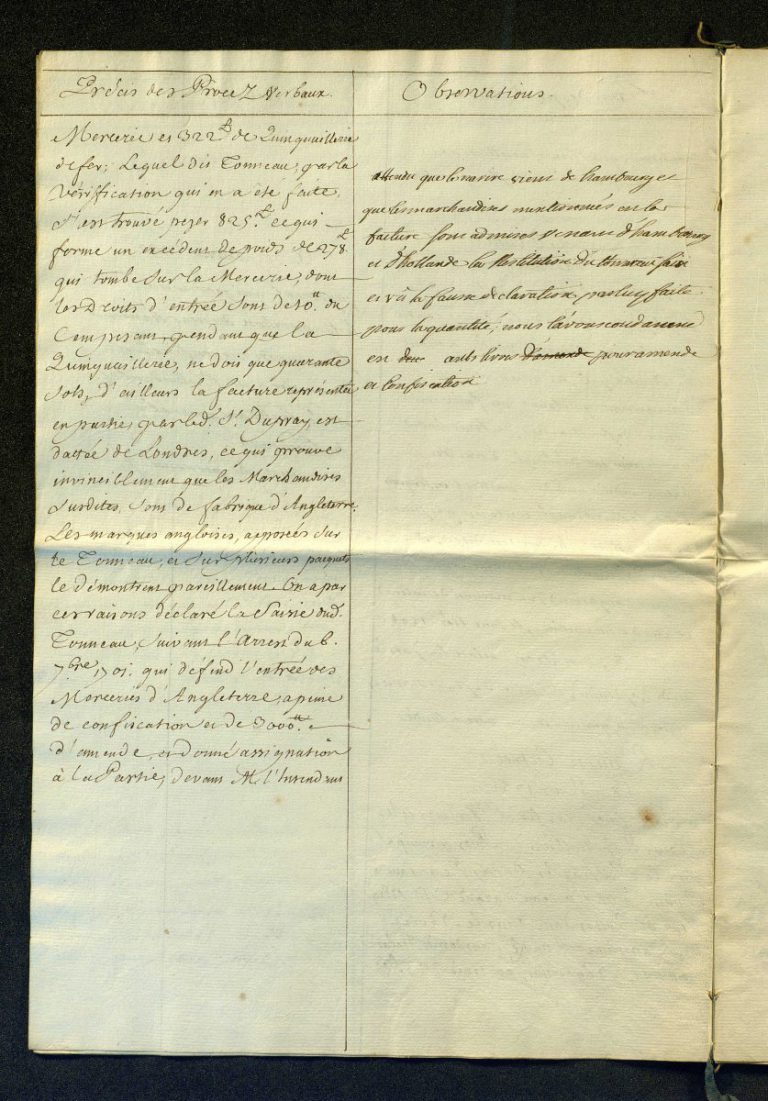 Précis des Procez Verbaux.
Mercerie et 322 ₶ de Quinquaillerie
de fer; Lequel dit Tonneau, par la
Vérification qui en a été faite
s'est trouvé pezer 825 ₶ ce qui
forme un excédent de poids de 278 ₶
qui tombe sur la Mercerie, dont
les Droits d'entrée sont de 10 ₶ du
Cent pesant, pendant que la
Quinquaillerie, ne doit que quarante
sols, d'ailleurs la facture représentée
en partie, par led. Sr. Dupray, est
dattée de Londres, ce qui prouve
invinciblement que les Marchandises
susdites, sont de fabrique d'Angleterre.
Les marques angloises, apposées sur
le Tonneau, et sur plusieurs paquets
le démontrent pareillement. On a par
ces raisons déclaré la Saisie dud.
Tonneau, suivant l'Arrest du 6.
7bre. 1701. qui défend l'entrée des
Merceries d'Angleterre, a peine
de confiscation et de 3000 ₶
d'amende, et donné assignation
à la Partie, devant M. l'Intendant
Observations.
attendu que le navire vient de hambourg et
que les marchandises mentionnés en la
facture sont admises venant d'hambourg
et d'hollande la Restitution du tonneau faire
et vû la fausse declaration par luy faite
pour la quantité, nous l'avons condamné
en cents livres d'amende pour amende
et Confiscation